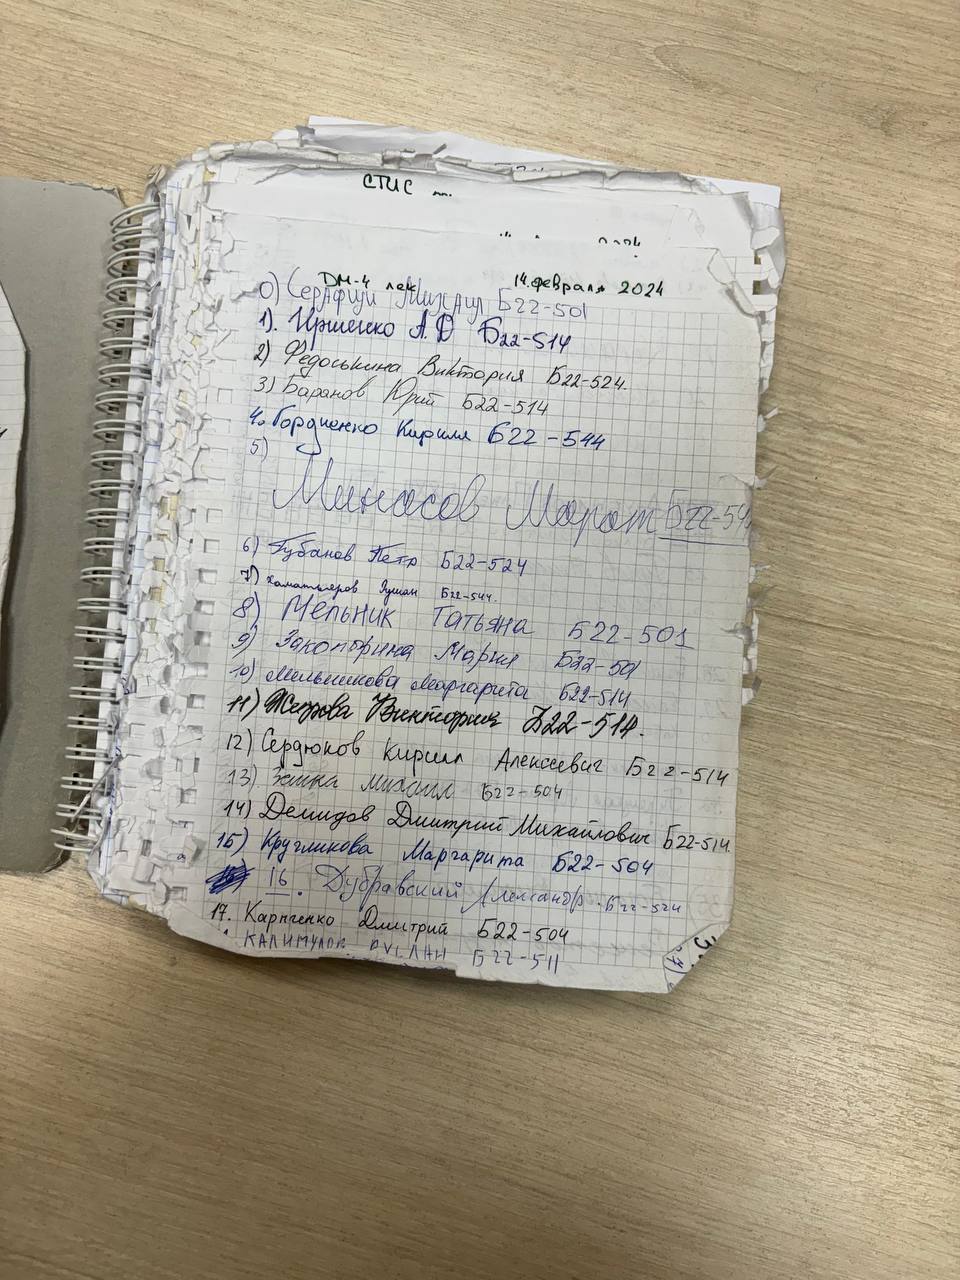 СТИС лк.
ДМ-4 лек 14.февраля 2024
0) Серафим Михаил Б22-501
1). Ирщенко А.Д Б22-514
2) Федоськина Виктория Б22-524.
3) Баранов Юрий Б22-514
4. Гордиенко Кирилл Б22-544
5)
Минасов Марат Б22-544
6) Губанов Петр Б22-524
7) Хаматьяров Рушан Б22-544.
8) Мельник Татьяна Б22-501
9) Закотрина Мария Б22-501
10) Мельникова Маргарита Б22-514
11) Жирова Виктория Б22-514.
12) Сердюков Кирилл Алексеевич Б22-514
13) Заика Михаил Б22-504
14) Демидов Дмитрий Михайлович Б22-514.
15) Кругликова Маргарита Б22-504
16. Дубравский Александр. Б22-524
17. Карпенко Дмитрий Б22-504
КАЛИМУЛОВ РУСЛАН Б22-511